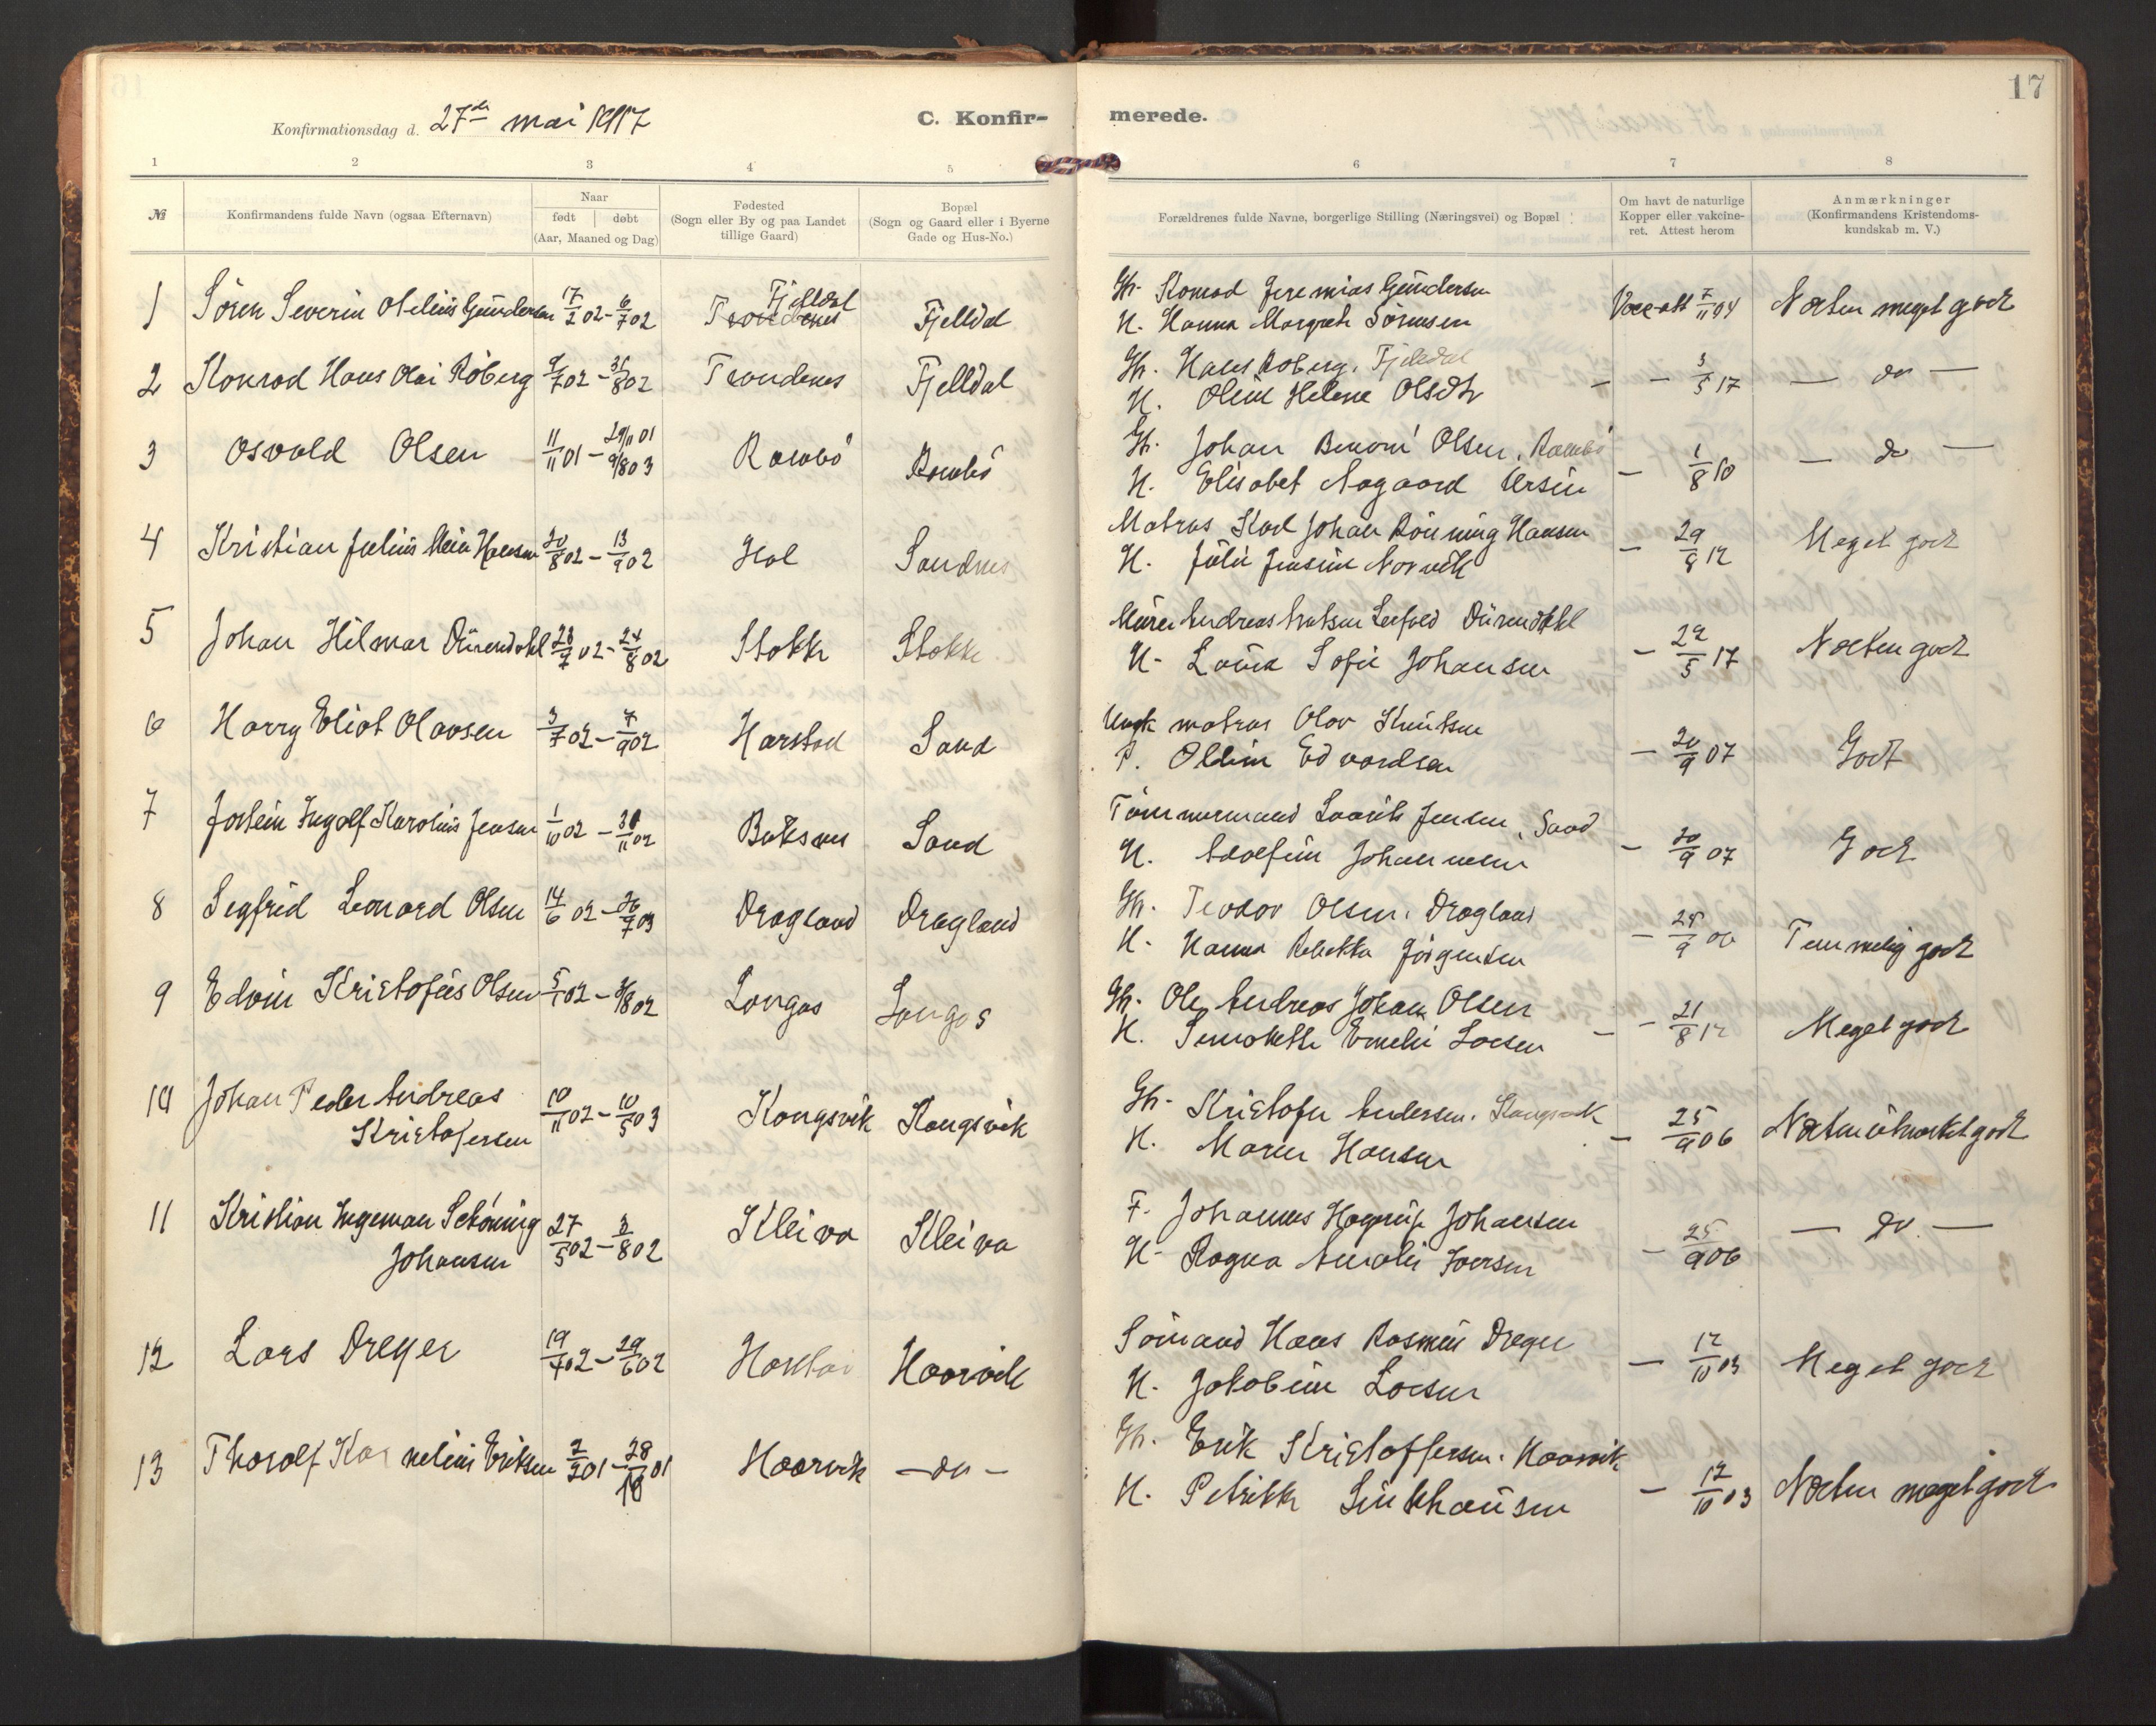 Konfirmationsdag d. 27de mai 1917
C. Konfir-
merede.
17
1 2 3 4 5 6 7 8
№ Konfirmandens fulde Navn (ogsaa Efternavn)
Naar
født døbt
(Aar, Maaned og Dag)
Fødested
(Sogn eller By og paa Landet
tillige Gaard)
Bopæl
(Sogn og Gaard eller i Byerne
Gade og Hus-No.)
Forældrenes fulde Navne, borgerlige Stilling (Næringsvei) og Bopæl
Om havt de naturlige
Kopper eller vakcine-
ret. Attest herom
Anmærkninger
(Konfirmandens Kristendoms-
kundskab m. V.)
1 Sören Severin Gundersen 17/2 02 - 6/7 02 Fjelldal Trondenes Fjelldal
Gbr. Konrad Jeremias Gundersen
H. Hanna Margrete Sörensen
7/11 04 Næsten meget godt
2 Konrad Hans Olai Röberg 9/7 02 - 31/8 02 Trondenes Fjelldal
Gbr. Hans Röberg. Fjelldal
H. Oline Helene Olsdtr
- - 3/5 17 — do —
3 Osvald Olsen 11/11 01 - 29/11 01 9/8 03 Rambö Rambö
Gbr. Johan Benoni Olsen, Rambö
H. Elisabet Aagaard Ursin
- 1/8 10 — do —
4 Kristian Julius Hansen 20/8 02 - 13/9 02 Hol Sandnes
Matros Karl Johan Rönning Hansen
H. Julie Jensine Norvik
- 29/8 12 Meget godt
5 Johan Hilmar Dürendahl 28/7 02 - 24/8 02 Stokke Stokke
Murer Andreas Dürendahl
H. Lovise Sofie Johansen
- 29/5 17 Næsten godt
6 Harry Eliot Olavsen 3/7 02 - 7/9 02 Harstad Sand
Ungk matros Olav Knutsen
P. Oldine Edvardsen
- 20/9 07 Godt
7 Jostein Ingolf Karolius Jensen 1/10 02 - 30/11 02 Sand
Tömmermand Laurits Jensen, Sand
H. Adolfine Johannesen
- 20/9 07 Godt
8 Segfred Leonard Olsen 14/6 02 - 26/7 03 Dragland Dragland
Gbr. Teodor Olsen. Dragland
H. Hanna Rebekka Jörgensen
- 25/9 06 Temmelig godt
9 Edvin Kristofus Olsen 5/1 02 - 3/8 02 Langas Langas
Gbr. Ole Andreas Johan Olsen
H. Emelie Larsen
- - 21/8 12 Meget godt
10 Johan Peder Andreas
Kristofersen 10/11 02 - 10/5 03 Kongsvik Kongsvik
Gbr. Kristofer Andersen. Kongsvik
H. Maren Hansen
- 25/9 06 Næsten utmerket godt
11 Kristian Ingeman Schöning
Johansen 27/5 02 - 3/8 02 Kleiva Kleiva
F. Johannes Hagerup Johansen
H. Ragna Amalie Iversen
- 25/9 06 — do. —
12 Lars Dreyer 19/4 02 - 29/6 02 Harstad Haarvik
Sömand Hans Rasmus Dreyer
H. Jakobine Larsen
- 12/10 03 Meget godt
13 Thoralf Kornelius Eriksen 2/2 01 - 28/10 01 Haarvik - do -
Gbr. Erik Kristoffersen. Haarvik
H. Petrikke Linkhausen
- 12/10 03 Næsten meget godt